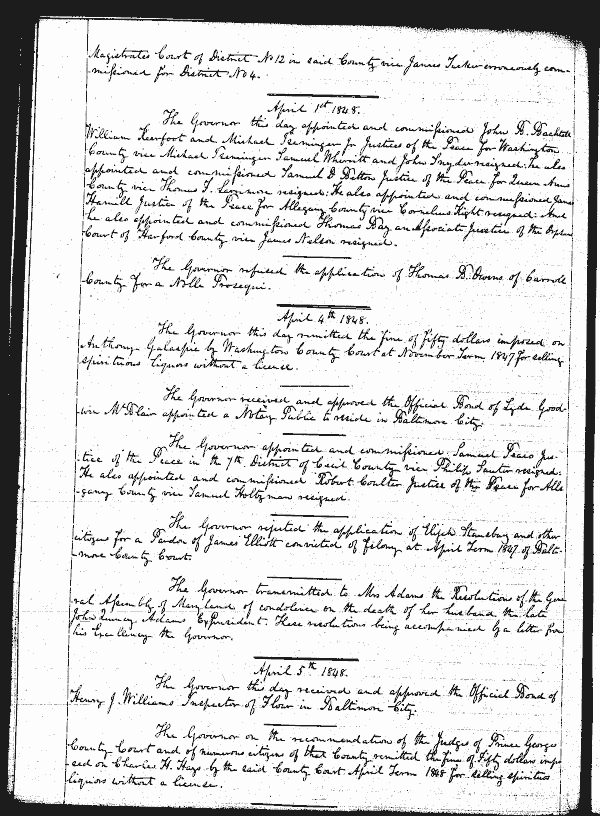 Magistrates Court of District No 12 in said County vice James Tucker erroneously com-
missioned for District No 4.
April 1st 1848.
The Governor this day appointed and commissioned John B. Bachtell
William Keerfort and Michael Iseminger Jr. Justices of the Peace for Washington
County vice Michael Iseminger Samuel Wherritt and John Snyder resigned: He also
appointed and commissioned Samuel D Dutton Justice of the Peace for Queen Anns
County vice Thomas F. resigned: He also appointed and commissioned James
Hamill Justice of the Peace for Allegany County vice Cornelius Kight resigned: And
he also appointed and commissioned Thomas Hay an Associate Justice of the Orphans
Court of Harford County vice James Nelson resigned.
The Governor refused the application of Thomas B. Owens of Carroll
County for a Nolle Prosequi.
April 4th 1848.
The Governor this day remitted the fine of fifty dollars imposed on
Anthony Galaspie by Washington County Court at November Term 1847 for selling
spirituous liquors without a license.
The Governor received and approved the Official Bond of Lyde Good-
win McBlair appointed a Notary Public to reside in Baltimore City.
The Governor appointed and commissioned Samuel Jus-
-tice of the Peace in the 7th District of Cecil County vice Philip resigned.
He also appointed and commissioned Robert Coulter Justice of the Peace for Alle
-gany County vice Samuel Holtzman resigned.
The Governor rejected the application of Elijah Stansbury and other
citizens for a Pardon of James Elliott convicted of felony at April Term 1847 of Balti-
-more County Court.
The Governor transmitted to Mrs Adams the Resolutions of the Gene
ral Assembly of Maryland of condolence on the death of her husband the late
John Quincy Adams ExPresident. These resolutions being accompanied by a letter from
his Excellency the Governor.
April 5th 1848.
The Governor this day received and approved the Official Bond of
Henry J. Williams Inspector of Flour in Baltimore City.
The Governor on the recommendation of the Judges of Prince Georges
County Court and of numerous citizens of that County remitted the fine of Fifty dollars imp
osed on Charles H. Hays by the said County Court April Term 1848 for selling spiritous
liquors without a license.